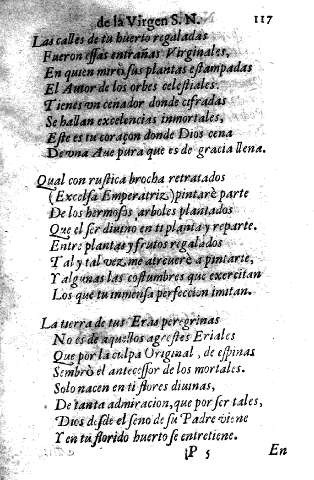 de la Virgen S. N. 117
Las calles de tu huerto regaladas
Fueron essas entrañas Virginales,
En quien mirò sus plantas estampadas
El Autor de los orbes celestiales.
Tienes vn cenador donde cifradas
Se hallan excelencias inmortales,
Este es tu coraçon donde Dios cena
De vna Aue pura que es de gracia llena.
Qual con rustica brocha retratados
(Excelsa Emperatriz) pintarè parte
De los hermosos arboles plantados
Que el ser diuino en ti planta y reparte.
Entre plantas y frutos regalados
Tal y tal vez me atreuerè a pintarte,
Y algunas las costumbres que exercitan
Los que tu inmensa perfeccion imitan.
La tierra de tus Eras peregrinas
No es de aquellos agrestes Eriales
Que por la culpa Original, de espinas
Sembrò el antecessor de los mortales.
Solo nacen en ti flores diuinas,
De tanta admiracion, que por ser tales,
Dios desde el seno de su Padre viene
Y en tu florido huerto se entretiene.
P 5 En